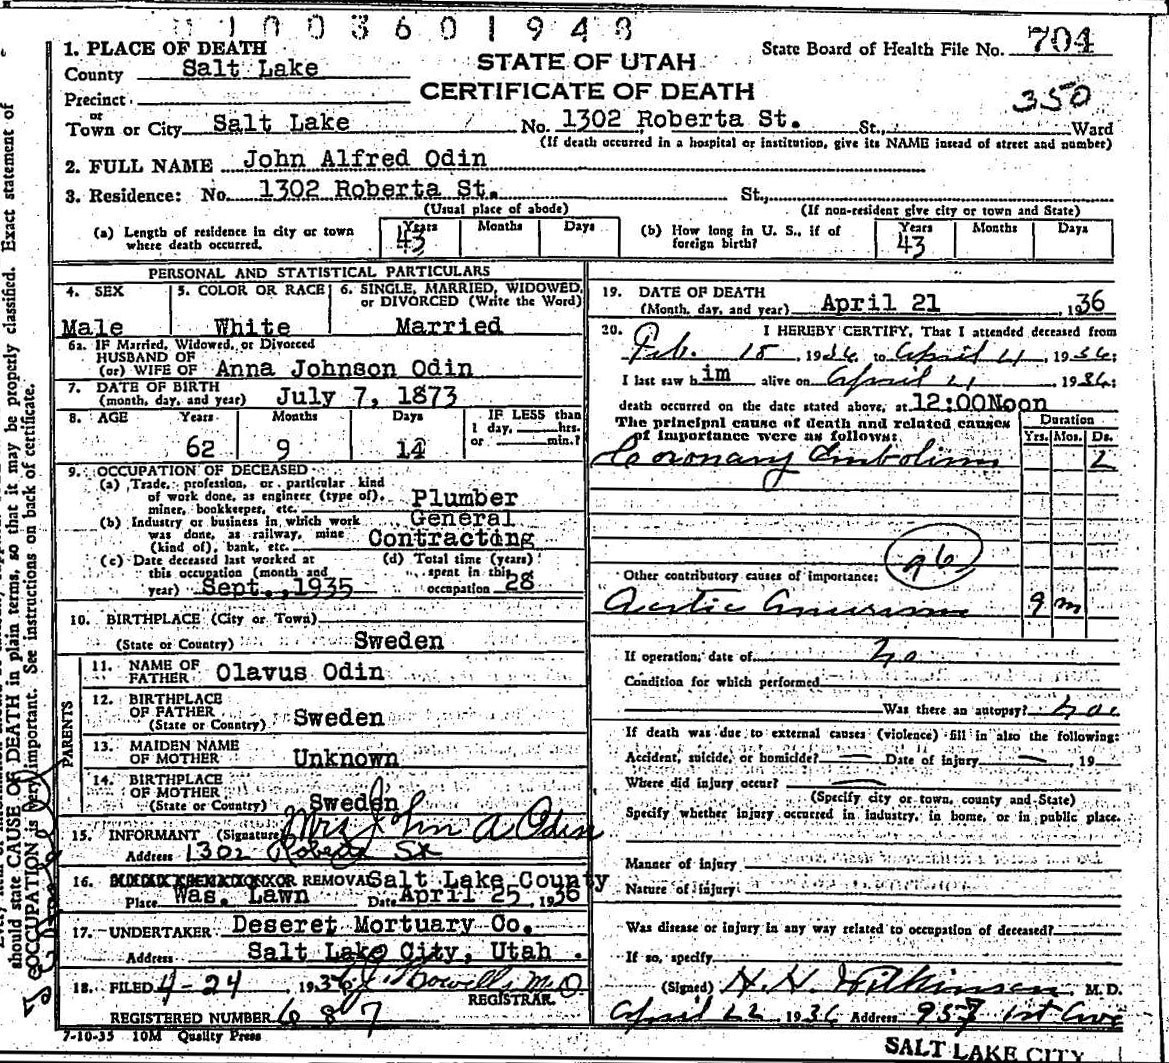 1003601948
1. PLACE OF DEATH
County Salt Lake
STATE OF UTAH
State Board of Health File No. 704
Precinct
CERTIFICATE OF DEATH
350
or
Town or City Salt Lake No. 1302 Roberta St. St., Ward
(If death occurred in a hospital or institution, give its NAME insead of street and number)
2. FULL NAME John Alfred Odin
3. Residence: No. 1302 Roberta St. St.,
(Usual place of abode) (If non-resident give city or town and State)
(a) Length of residence in city or town where death occurred. Years 43 Months Days
(b) How long in U. S., if of foreign birth? Years 43 Months Days
PERSONAL AND STATISTICAL PARTICULARS
4. SEX Male
5. COLOR OR RACE White
6. SINGLE, MARRIED, WIDOWED, or DIVORCED (Write the Word) Married
6a. IF Married, Widowed, or Divorced
HUSBAND OF
(or) WIFE OF Anna Johnson Odin
7. DATE OF BIRTH
(month, day, and year) July 7, 1873
8. AGE Years Months Days IF LESS than
1 day, hrs.
or min.?
62 9 14
9. OCCUPATION OF DECEASED
(a) Trade, profession, or particular kind
of work done, as engineer (type of),
miner, bookkeeper, etc. Plumber
(b) Industry or business in which work
was done, as railway, mine
(kind of), bank, etc. General Contracting
(c) Date deceased last worked at
this occupation (month and
year) Sept., 1935
(d) Total time (years)
spent in this
occupation 28
10. BIRTHPLACE (City or Town)
(State or Country) Sweden
PARENTS
11. NAME OF
FATHER Olavus Odin
12. BIRTHPLACE
OF FATHER
(State or Country) Sweden
13. MAIDEN NAME
OF MOTHER Unknown
14. BIRTHPLACE
OF MOTHER
(State or Country) Sweden
15. INFORMANT (Signature) Mrs John A Odin
Address 1302 Roberta St
16. REMOVAL Salt Lake County
Place Was. Lawn Date April 25, 1936
17. UNDERTAKER Deseret Mortuary Co.
Address Salt Lake City, Utah.
18. FILED 4-24 1936 M.D.
REGISTRAR.
REGISTERED NUMBER 687
7-10-35 10M Quality Press
19. DATE OF DEATH
(Month, day, and year) April 21, 1936
20. I HEREBY CERTIFY, That I attended deceased from
Feb. 15, 1936, to April 21, 1936;
I last saw him alive on April 21, 1936;
death occurred on the date stated above, at 12:00Noon
The principal cause of death and related causes
of importance were as follows:
Duration
Yrs. Mos. Ds.
Coronary Embolism
96
Other contributory causes of importance:
Aortic Aneurism 9 m
If operation, date of No
Condition for which performed
Was there an autopsy?
If death was due to external causes (violence) fill in also the following:
Accident, suicide, or homicide? — Date of injury —, 19
Where did injury occur? —
(Specify city or town, county and State)
Specify whether injury occurred in industry, in home, or in public place.
Manner of injury
Nature of injury
Was disease or injury in any way related to occupation of deceased?
If so, specify
(Signed) H. H. Wilkinson M. D.
April 22, 1936 Address 957 1st Ave
SALT LAKE CITY
should state CAUSE OF DEATH in plain terms, so that it may be properly classified. Exact statement of
OCCUPATION is very important. See instructions on back of certificate.